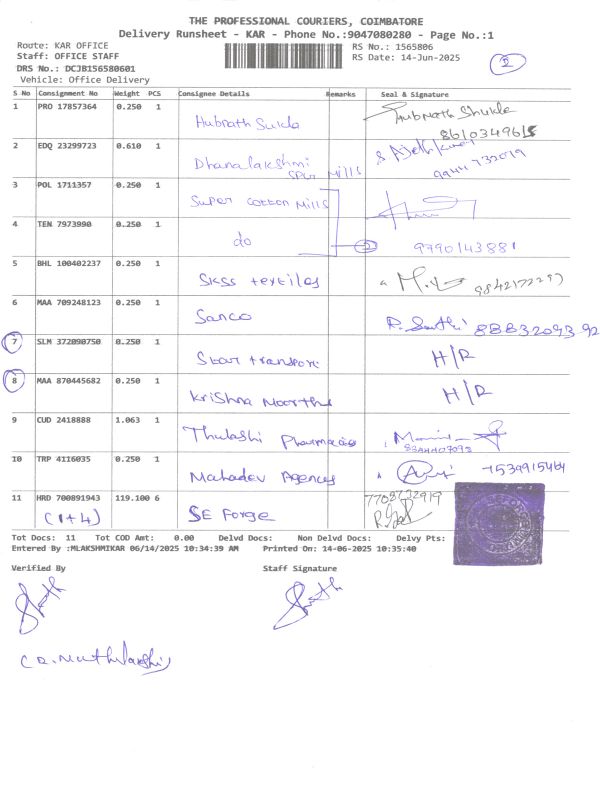 THE PROFESSIONAL COURIERS, COIMBATORE
Delivery Runsheet - KAR - Phone No.:9047080280 - Page No.:1
Route: KAR OFFICE RS No.: 1565806
Staff: OFFICE STAFF RS Date: 14-Jun-2025
DRS No.: DCJB156580601
Vehicle: Office Delivery
S No Consignment No Weight PCS Consignee Details Remarks Seal & Signature
1 PRO 17857364 0.250 1 Hubnath Sukla Hubnath Shukla
2 EDQ 23299723 0.610 1 Dhanalakshmi Spur Mills
9944732019
3 POL 1711357 0.250 1 Super Cotton Mills
4 TEN 7973990 0.250 1 do 2 9790143881
5 BHL 100402237 0.250 1 SKSS textiles 9842172297
6 MAA 709248123 0.250 1 Sanco 8883209392
7 SLM 372090750 0.250 1 Star transport H/R
8 MAA 870445682 0.250 1 Krishna Moorthy H/R
9 CUD 2418888 1.063 1 Thulashi Pharmacies
8344407093
10 TRP 4116035 0.250 1 Mahadev Agences 7539915464
11 HRD 700891943 119.100 6 SE Forge 7708732919
(1+4)
Tot Docs: 11 Tot COD Amt: 0.00 Delvd Docs: Non Delvd Docs: Delvy Pts:
Entered By :MLAKSHMIKAR 06/14/2025 10:34:39 AM Printed On: 14-06-2025 10:35:40
Verified By Staff Signature